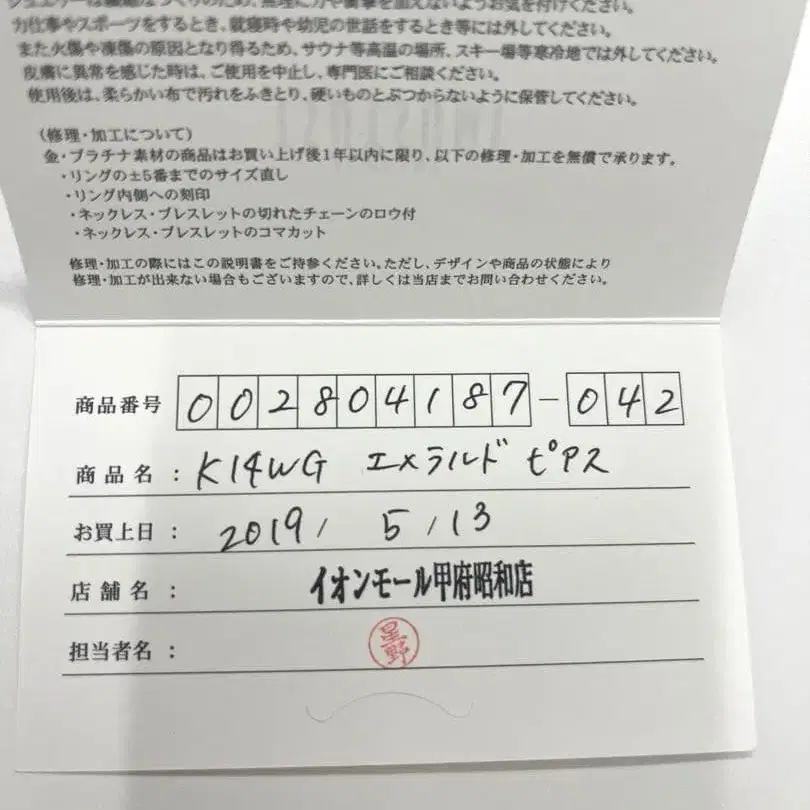 ジュエリーは繊細なつくりのため、無理に力や衝撃を加えないようお気を付けください。
力仕事やスポーツをするとき、就寝時や幼児の世話をするとき等には外してください。
また火傷や凍傷の原因となり得るため、サウナ等高温の場所、スキー場等寒冷地では外してください。
皮膚に異常を感じた時は、ご使用を中止し、専門医にご相談ください。
使用後は、柔らかい布で汚れをふきとり、硬いものとぶつからないように保管してください。
(修理・加工について)
金・プラチナ素材の商品はお買い上げ後1年以内に限り、以下の修理・加工を無償で承ります。
・リングの±5番までのサイズ直し
・リング内側への刻印
・ネックレス・ブレスレットの切れたチェーンのロウ付
・ネックレス・ブレスレットのコマカット
修理・加工の際にはこの説明書をご持参ください。ただし、デザインや商品の状態により
修理・加工が出来ない場合もございますので、詳しくは当店までお問い合わせください。
商品番号 002804187-042
商品名: K14WG エメラルド ピアス
お買上日: 2019/ 5/13
店舗名: イオンモール甲府昭和店
担当者名: 星野